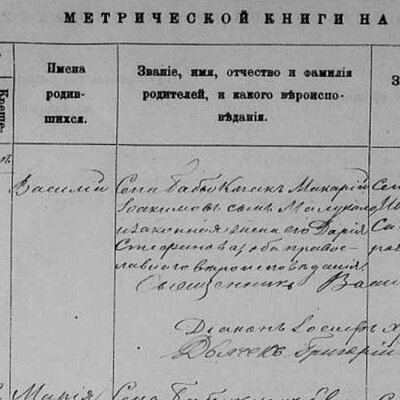 МЕТРИЧЕСКОЙ КНИГИ НА
Креще-
Имена
родив-
шихся.
Званіе, имя, отчество и фамилія
родителей, и какого вѣроиспо-
вѣданія.
З
Василій
Села Бабы Казакъ Макарій
Іоакимовъ сынъ
и законная жена его Дарія
Стефанова, оба право-
славнаго вѣроисповѣданія.
Священникъ Васи
Діаконъ Іосифъ
Дьячекъ Григорій
Марія
Села